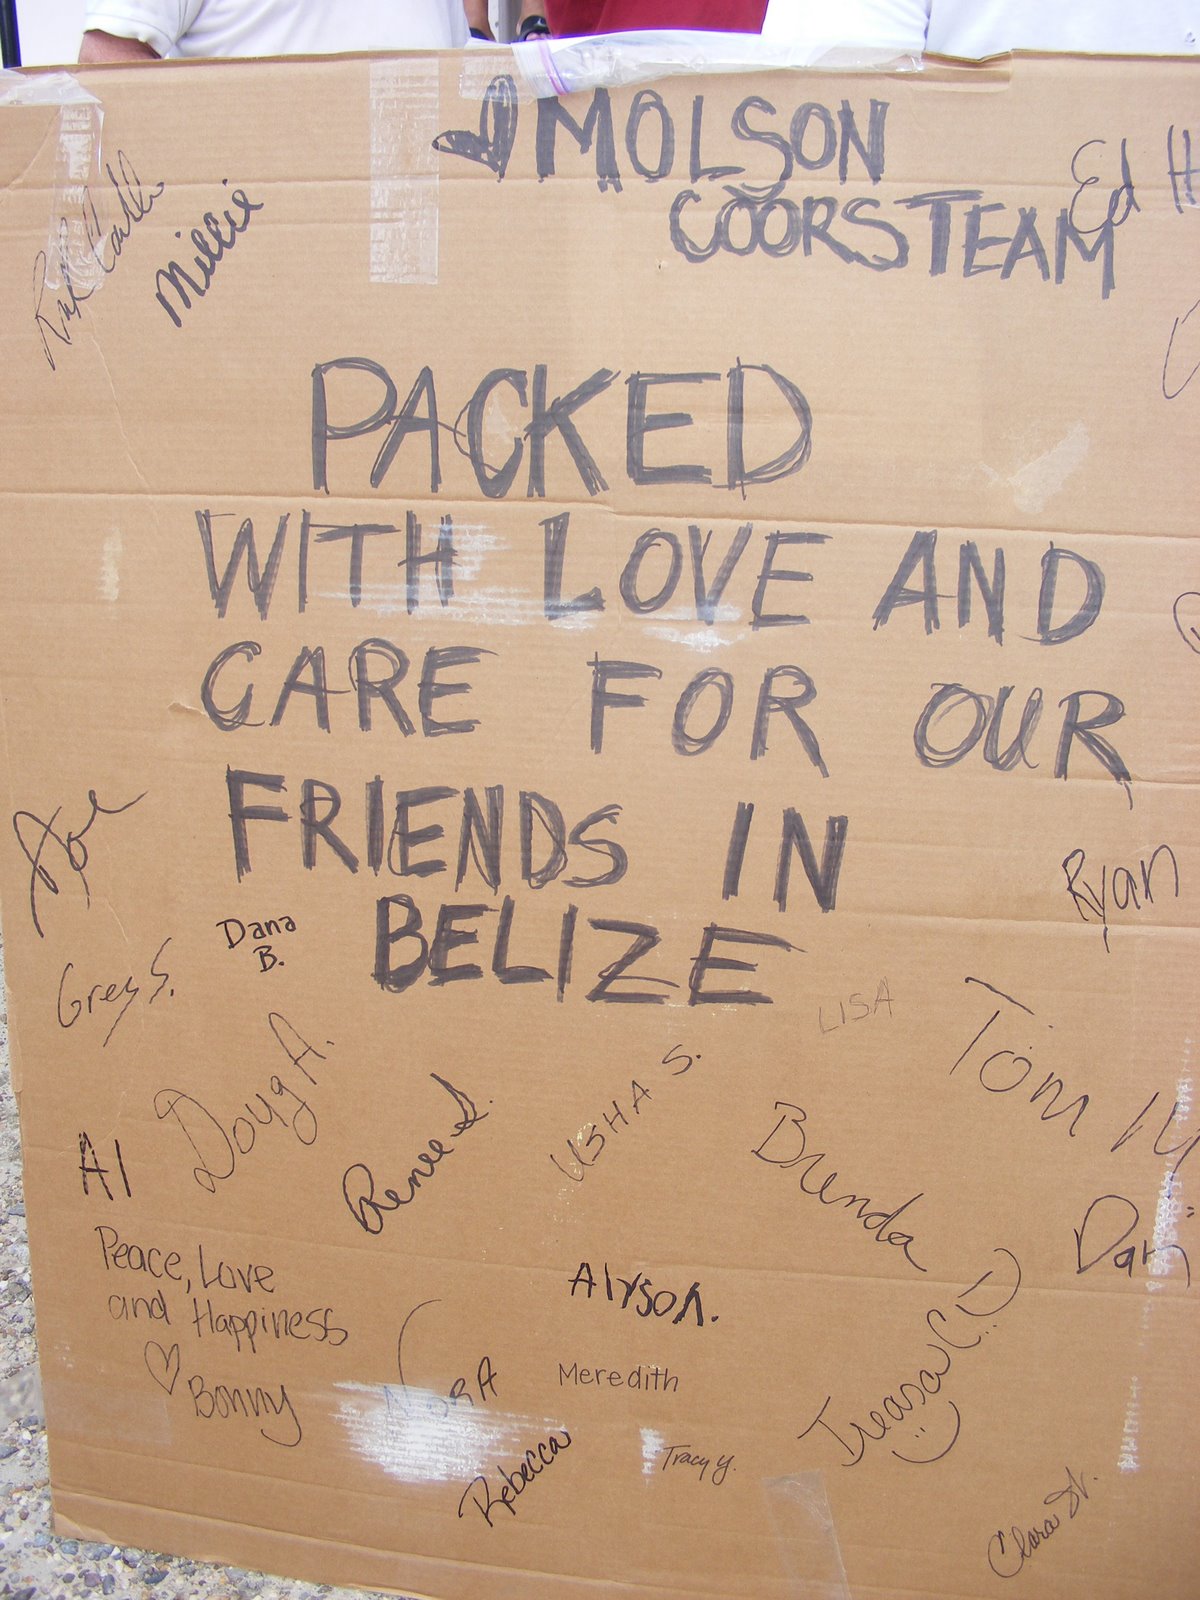 MOLSON
COORS TEAM
Ed H
Millie
PACKED
WITH LOVE AND
CARE FOR OUR
FRIENDS IN
BELIZE
Joe
Ryan
Dana
B.
Greg S.
LISA
Tom
Doug A.
USHA S.
Renee S.
Brenda
Al
Dan
Peace, Love
and Happiness
Bonny
Alyson.
NORA
Meredith
Treasa C
Rebecca
Tracy Y.
Clara St.